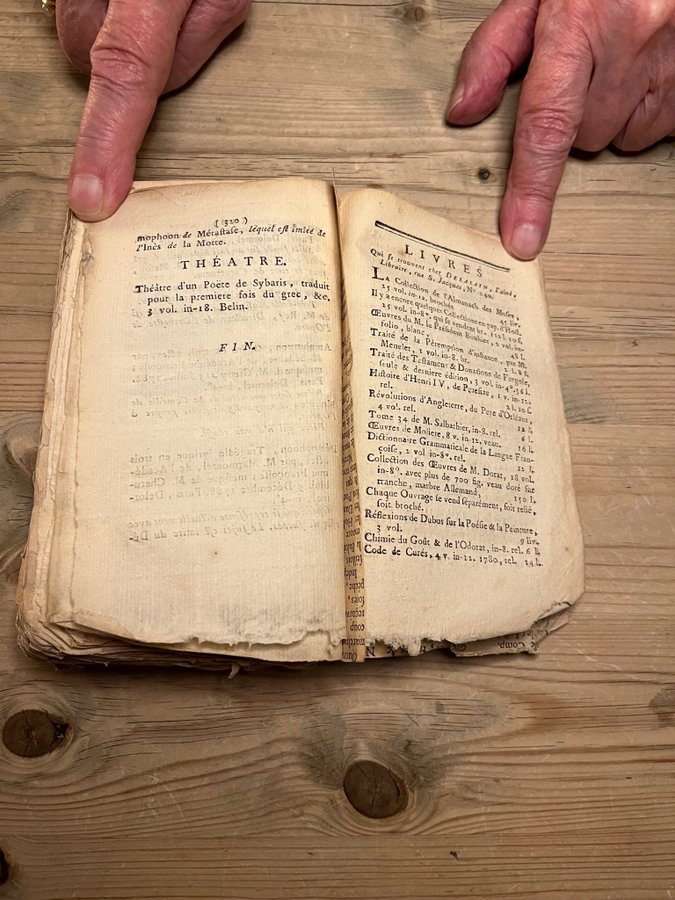 ( 320 )
mophoon de Métastase, lequel est imité de
l'Inès de la Motte.
THÉATRE.
Théâtre d'un Poëte de Sybaris, traduit
pour la premiere fois du grec, &c.
3 vol. in-18. Belin.
FIN.
LIVRES
Qui se trouvent chez DELALAIN, l'aîné,
Libraire, rue S. Jacques, N°. 240.
LA Collection de l'Almanach des Muses,
25 vol. in-12. brochés 45 liv.
Il y a encore quelques Collections en pap. d'Holl.
25 vol. in-8°. qui se vendent br. 112 l. 10 s.
Œuvres de M. le Président Bouhier, 2 vol. in-
folio, blanc, 48 l.
Traité de la Péremption d'instance, par M.
Menelet, 1 vol. in-8. br. 2 l. 8 s.
Traité des Testamens & Donations de Furgole,
seule & derniere édition, 3 vol. in-4°. 36 l.
Histoire d'Henri IV, de Perefixe, 1 v. in-12.
rel. 2 l. 10 s.
Révolutions d'Angleterre, du Pere d'Orléans,
4 vol. rel. 12 l.
Tome 34 de M. Salbathier, in-8. rel. 6 l.
Œuvres de Moliere, 8 v. in-12. veau. 16 l.
Dictionnaire Grammaticale de la Langue Fran-
çoise, 2 vol. in-8°. rel. 12 l.
Collection des Œuvres de M. Dorat, 18 vol.
in-8°. avec plus de 700 fig. veau doré sur
tranche, marbre Allemand, 150 l.
Chaque Ouvrage se vend séparément, soit relié,
soit broché.
Réflexions de Dubos sur la Poésie & la Peinture,
3 vol. 9 liv.
Chimie du Goût & de l'Odorat, in-8. rel. 6 l.
Code de Curés, 4 v. in-12. 1780, rel. 14 l.